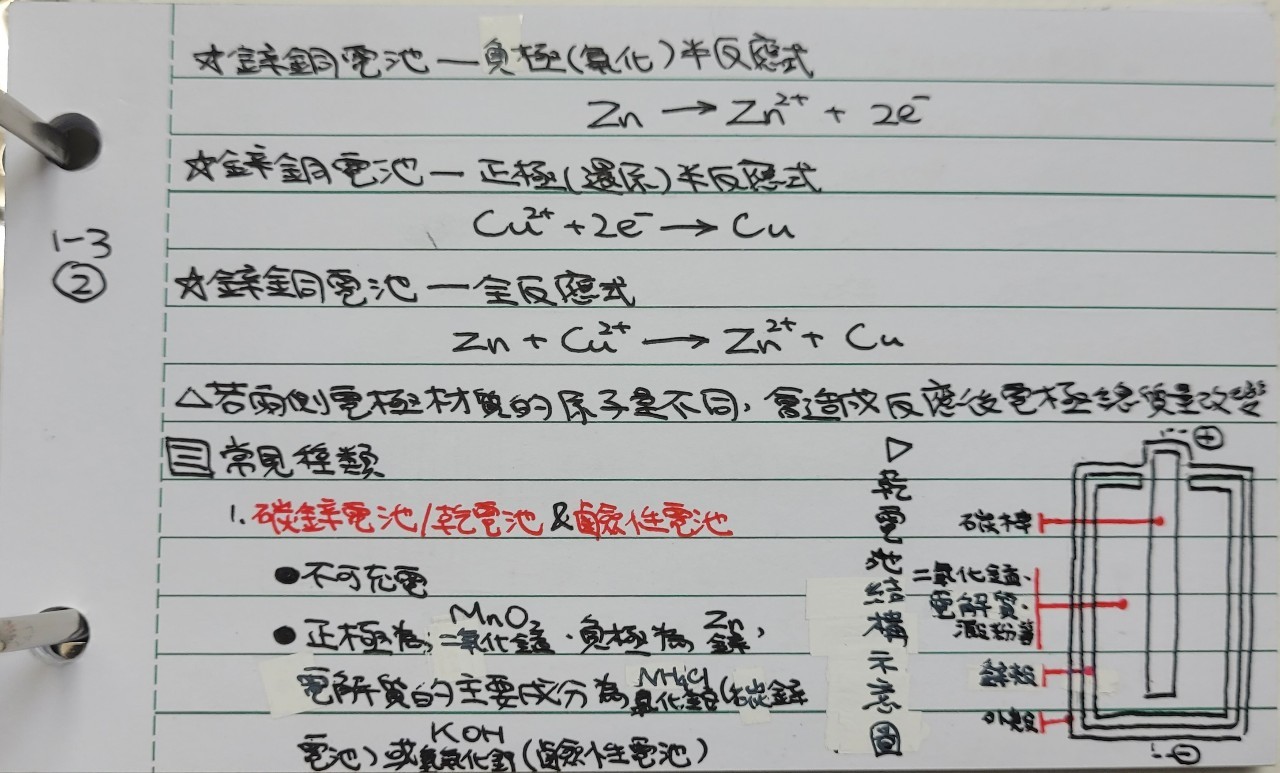 1-3
②
☆鋅銅電池—負極(氧化)半反應式
Zn → Zn²⁺ + 2e⁻
☆鋅銅電池—正極(還原)半反應式
Cu²⁺ + 2e⁻ → Cu
☆鋅銅電池—全反應式
Zn + Cu²⁺ → Zn²⁺ + Cu
△若兩側電極材質的原子量不同,會造成反應後電極總質量改變
三 常見種類
1. 碳鋅電池/乾電池 & 鹼性電池
●不可充電
MnO₂ Zn
●正極為二氧化錳·負極為鋅,
NH₄Cl
電解質的主要成分為氯化銨(碳鋅
KOH
電池)或氫氧化鉀(鹼性電池)
▷乾電池結構示意圖
⊕
碳棒
二氧化錳、
電解質、
澱粉等
鋅殼
外殼
⊖